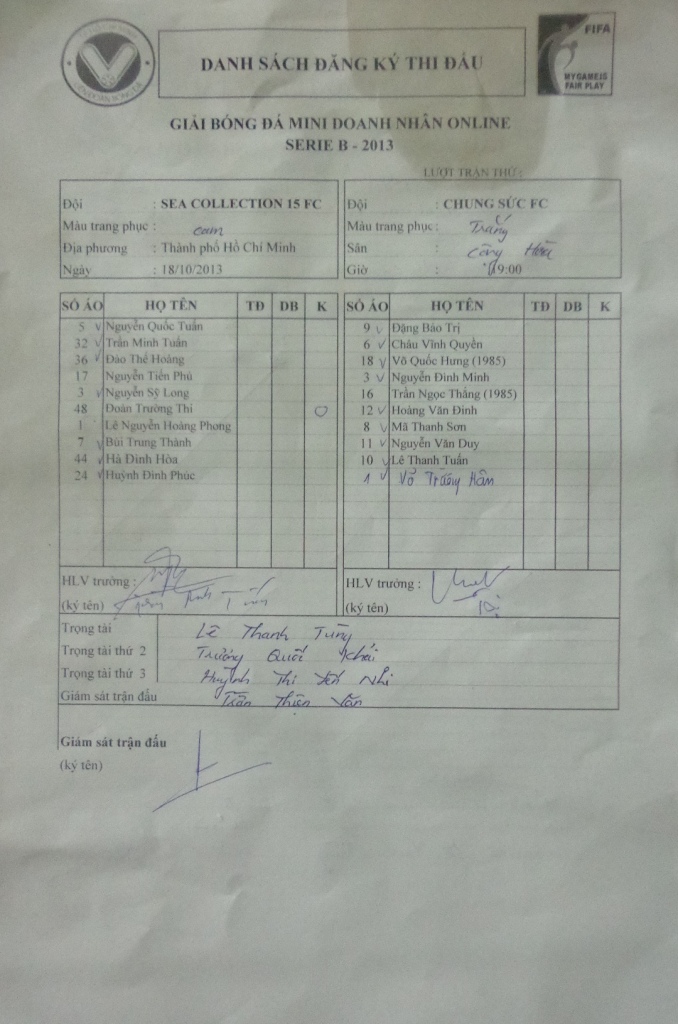 FIFA
MY GAME IS
FAIR PLAY
DANH SÁCH ĐĂNG KÝ THI ĐẤU
GIẢI BÓNG ĐÁ MINI DOANH NHÂN ONLINE
SERIE B - 2013
LƯỢT TRẬN THỨ :
Đội : SEA COLLECTION 15 FC
Màu trang phục : cam
Địa phương : Thành phố Hồ Chí Minh
Ngày : 18/10/2013
Đội : CHUNG SỨC FC
Màu trang phục : Trắng
Sân : Cộng Hòa
Giờ : 19:00
SỐ ÁO HỌ TÊN TĐ DB K
5 v Nguyễn Quốc Tuấn
32 v Trần Minh Tuấn
36 v Đào Thế Hoàng
17 Nguyễn Tiến Phú
3 v Nguyễn Sỹ Long
48 Đoàn Trường Thi O
1 Lê Nguyễn Hoàng Phong
7 v Bùi Trung Thành
44 v Hà Đình Hòa
24 v Huỳnh Đình Phúc
SỐ ÁO HỌ TÊN TĐ DB K
9 v Đặng Bảo Trị
6 v Châu Vĩnh Quyền
18 v Võ Quốc Hưng (1985)
3 v Nguyễn Đình Minh
16 Trần Ngọc Thắng (1985)
12 v Hoàng Văn Đinh
8 v Mã Thanh Sơn
11 v Nguyễn Văn Duy
10 v Lê Thanh Tuấn
1 v Võ Trường Hân
HLV trưởng :
(ký tên)
HLV trưởng :
(ký tên)
Trọng tài Lê Thanh Tùng
Trọng tài thứ 2 Trương Quốc Khải
Trọng tài thứ 3 Huỳnh Thị Yến Nhi
Giám sát trận đấu Trần Thiên Văn
Giám sát trận đấu
(ký tên)